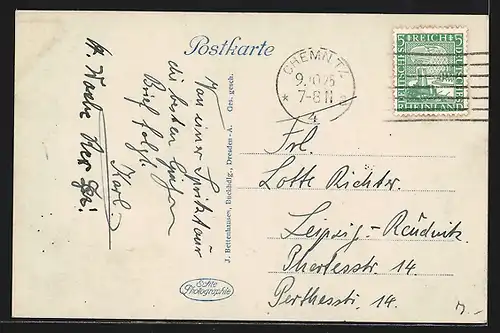 Postkarte
CHEMNITZ
9.10.25
7-8 N
* 4 a
5 REICH 5
DEUTSCHES
DEUTSCHES
RHEINLAND
Von einer Spritztour
die besten Grüße
Brief folgt
Karl
J. Bettenhausen, Buchhdlg., Dresden-A. Ges. gesch.
Echte
Photographie
Frl.
Lotte Richter
Leipzig-Reudnitz
Perthesstr. 14